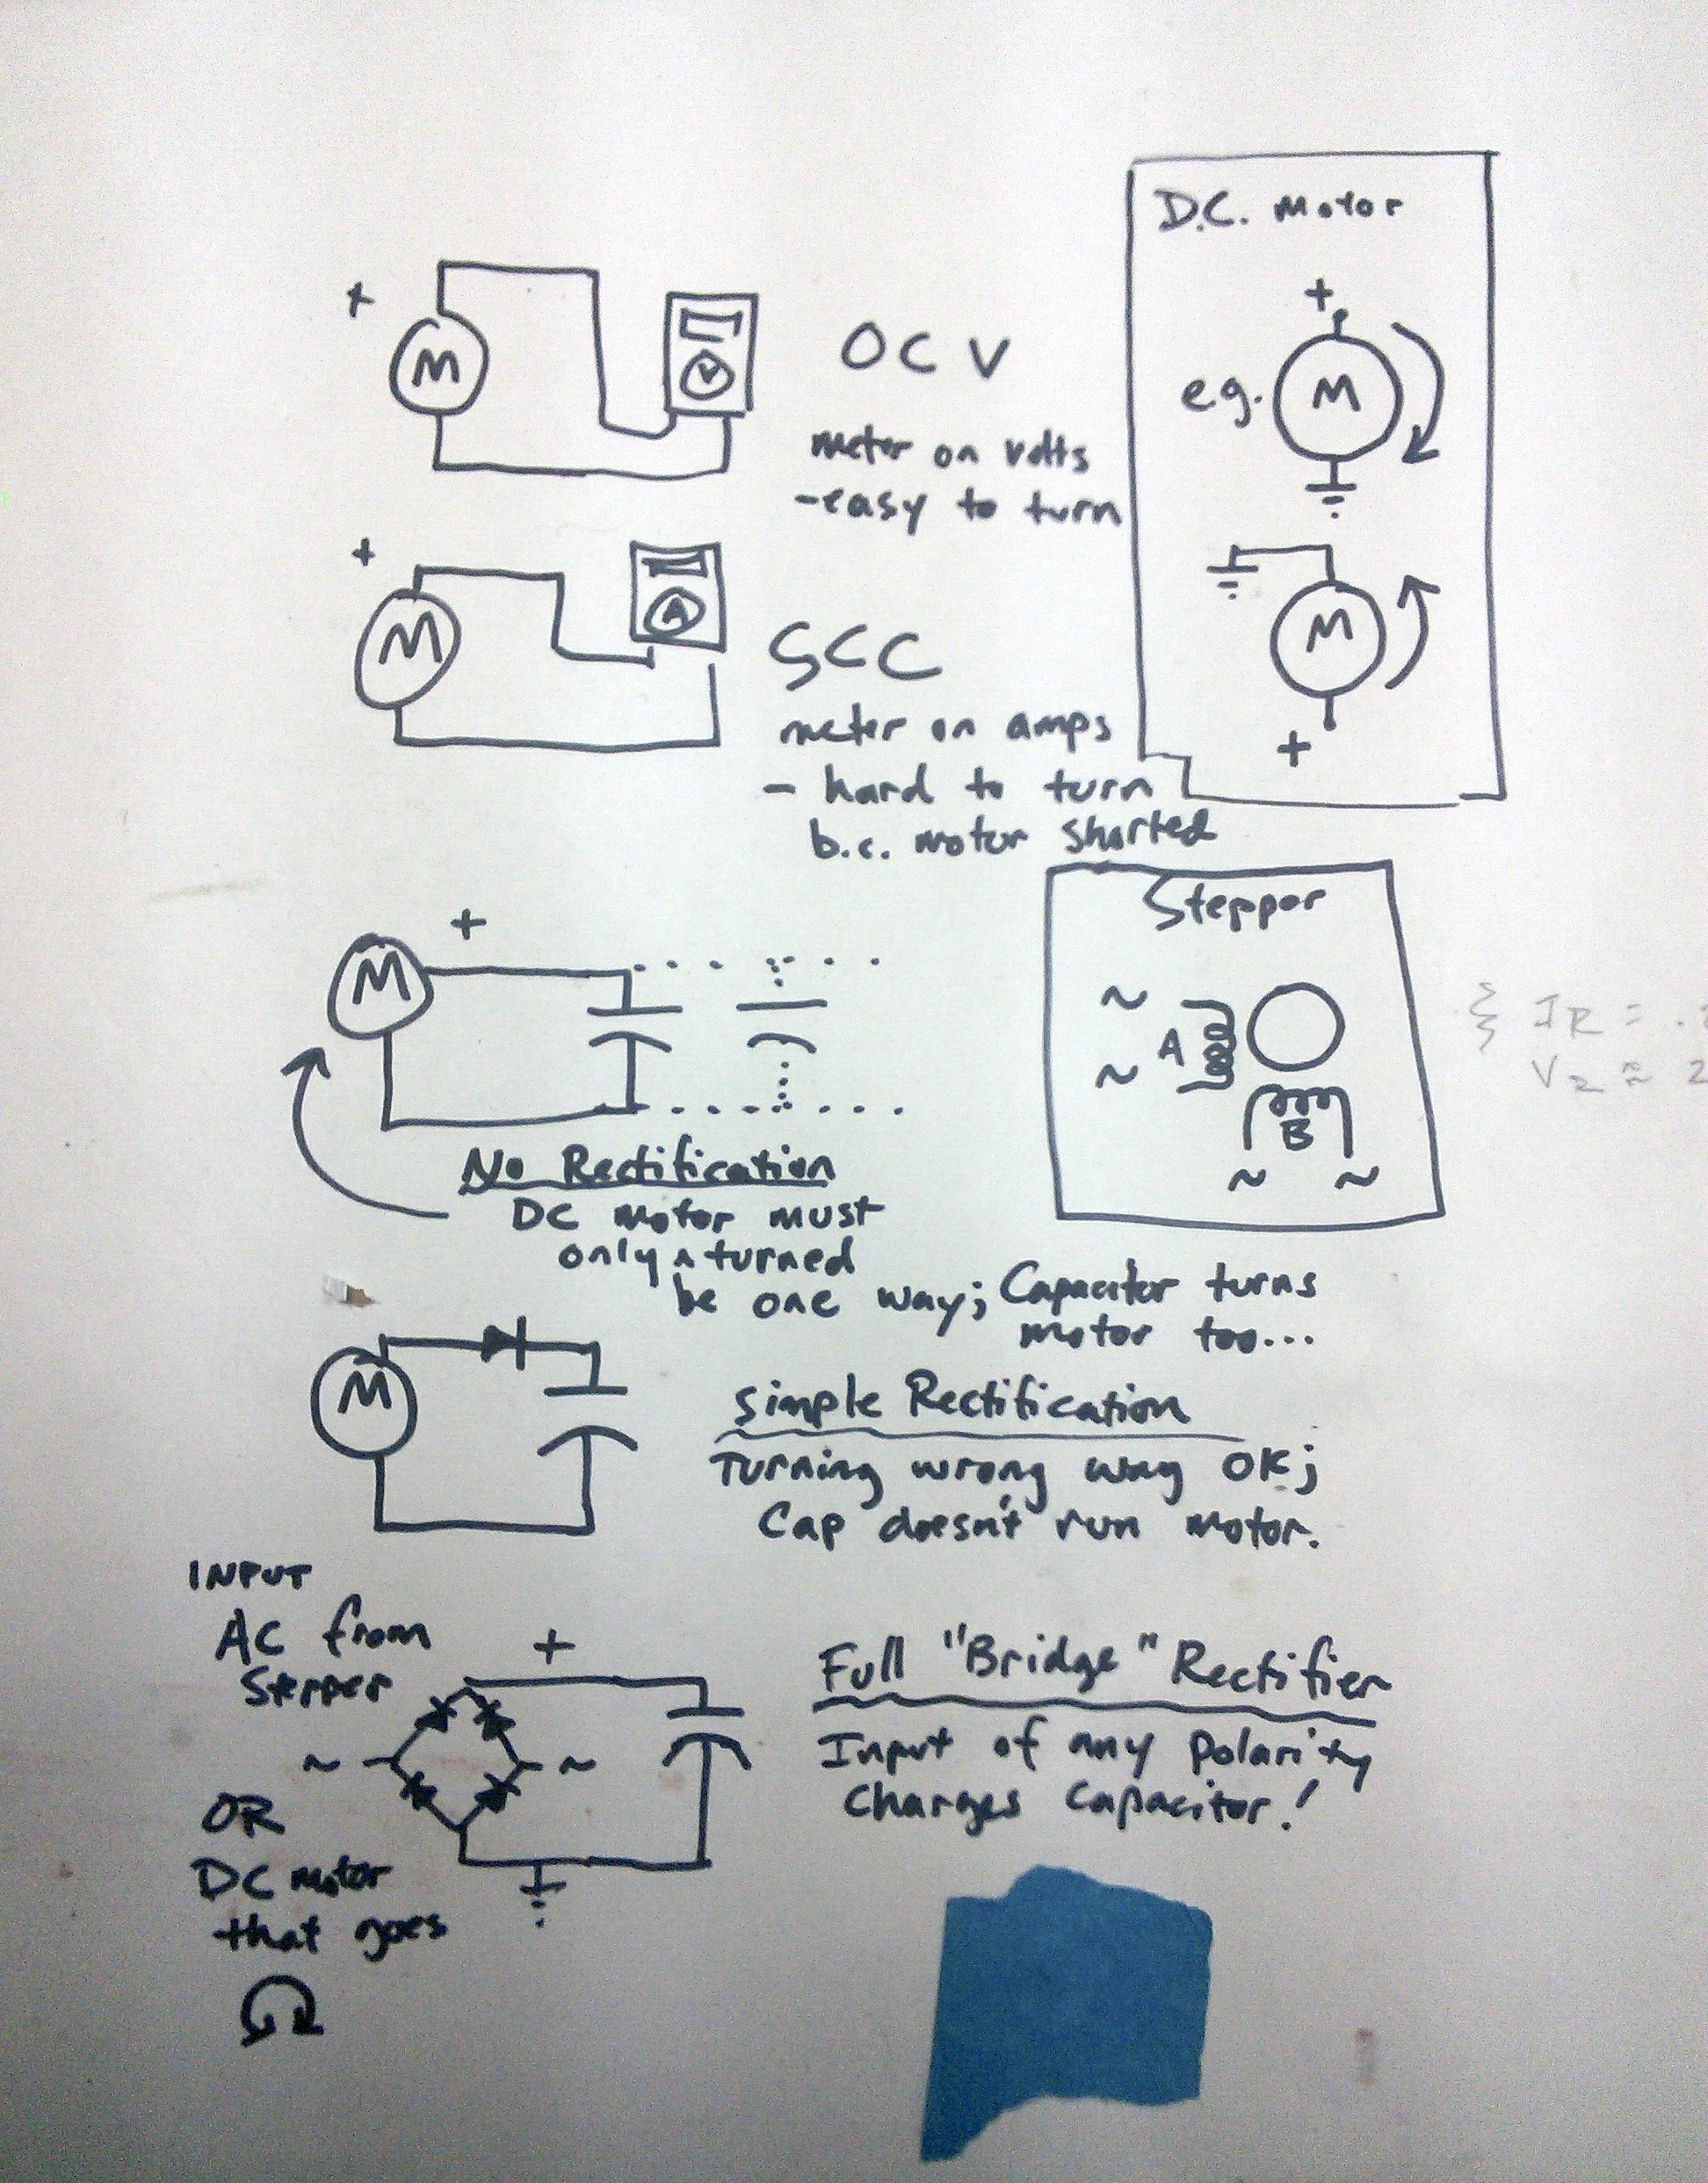 D.C. Motor
+
M
V
OCV
meter on volts
-easy to turn
+
e.g.
M
+
M
A
SCC
meter on amps
- hard to turn
b.c. motor shorted
M
+
Stepper
~
A
~
B
~ ~
+
M
No Rectification
DC motor must
only ^ turned
be one way; Capacitor turns
motor too...
IR = .
M
Simple Rectification
Turning wrong way OK;
Cap doesn't run motor.
INPUT
AC from
Stepper
+
~ ~
OR
DC motor
that goes
Full "Bridge" Rectifier
Input of any polarity
Charges Capacitor!